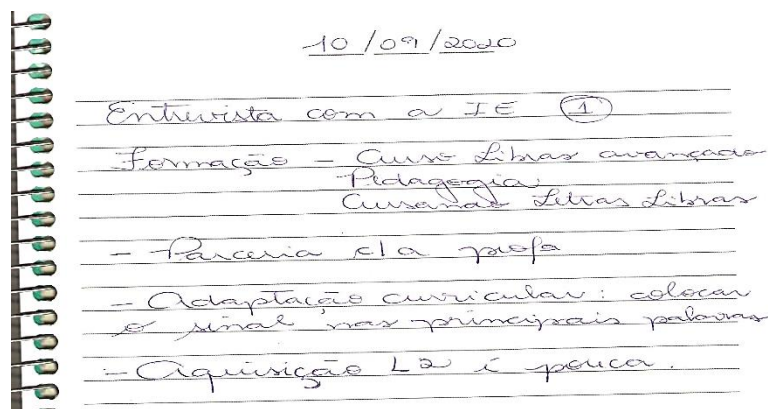 10/09/2020
Entrevista com a IE 1
Formação - Curso Libras avançado
Pedagogia
Cursando Letras Libras
- Parceria c/ a profa
- Adaptação curricular: colocar
o sinal nas principais palavras
- Aquisição L2 é pouca.